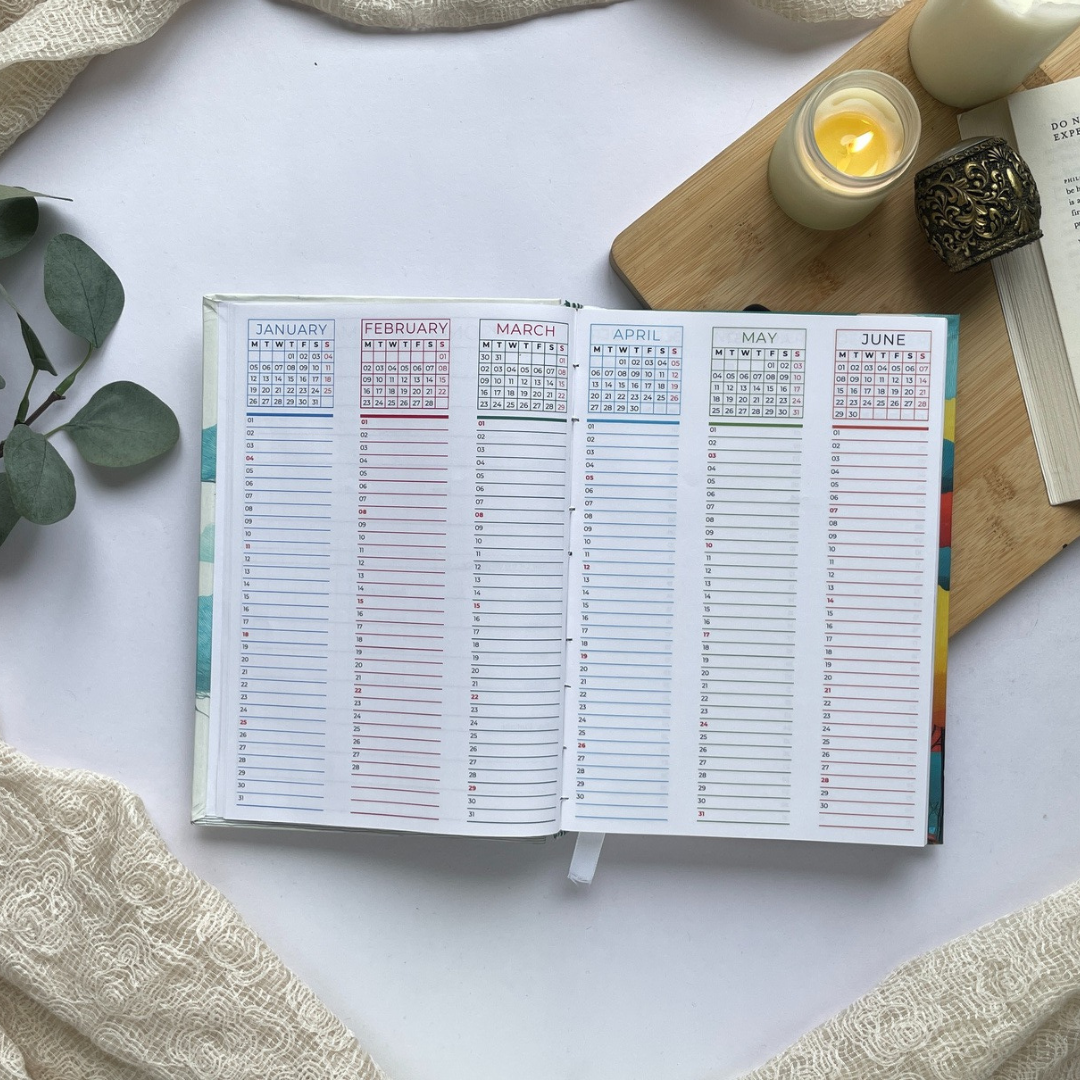 JANUARY
M T W T F S S
01 02 03 04
05 06 07 08 09 10 11
12 13 14 15 16 17 18
19 20 21 22 23 24 25
26 27 28 29 30 31
01
02
03
04
05
06
07
08
09
10
11
12
13
14
15
16
17
18
19
20
21
22
23
24
25
26
27
28
29
30
31
FEBRUARY
M T W T F S S
01
02 03 04 05 06 07 08
09 10 11 12 13 14 15
16 17 18 19 20 21 22
23 24 25 26 27 28
01
02
03
04
05
06
07
08
09
10
11
12
13
14
15
16
17
18
19
20
21
22
23
24
25
26
27
28
MARCH
M T W T F S S
30 31 01
02 03 04 05 06 07 08
09 10 11 12 13 14 15
16 17 18 19 20 21 22
23 24 25 26 27 28 29
01
02
03
04
05
06
07
08
09
10
11
12
13
14
15
16
17
18
19
20
21
22
23
24
25
26
27
28
29
30
31
APRIL
M T W T F S S
01 02 03 04 05
06 07 08 09 10 11 12
13 14 15 16 17 18 19
20 21 22 23 24 25 26
27 28 29 30
01
02
03
04
05
06
07
08
09
10
11
12
13
14
15
16
17
18
19
20
21
22
23
24
25
26
27
28
29
30
MAY
M T W T F S S
01 02 03
04 05 06 07 08 09 10
11 12 13 14 15 16 17
18 19 20 21 22 23 24
25 26 27 28 29 30 31
01
02
03
04
05
06
07
08
09
10
11
12
13
14
15
16
17
18
19
20
21
22
23
24
25
26
27
28
29
30
31
JUNE
M T W T F S S
01 02 03 04 05 06 07
08 09 10 11 12 13 14
15 16 17 18 19 20 21
22 23 24 25 26 27 28
29 30
01
02
03
04
05
06
07
08
09
10
11
12
13
14
15
16
17
18
19
20
21
22
23
24
25
26
27
28
29
30
DO N
EXPE
PHIL
be h
is a